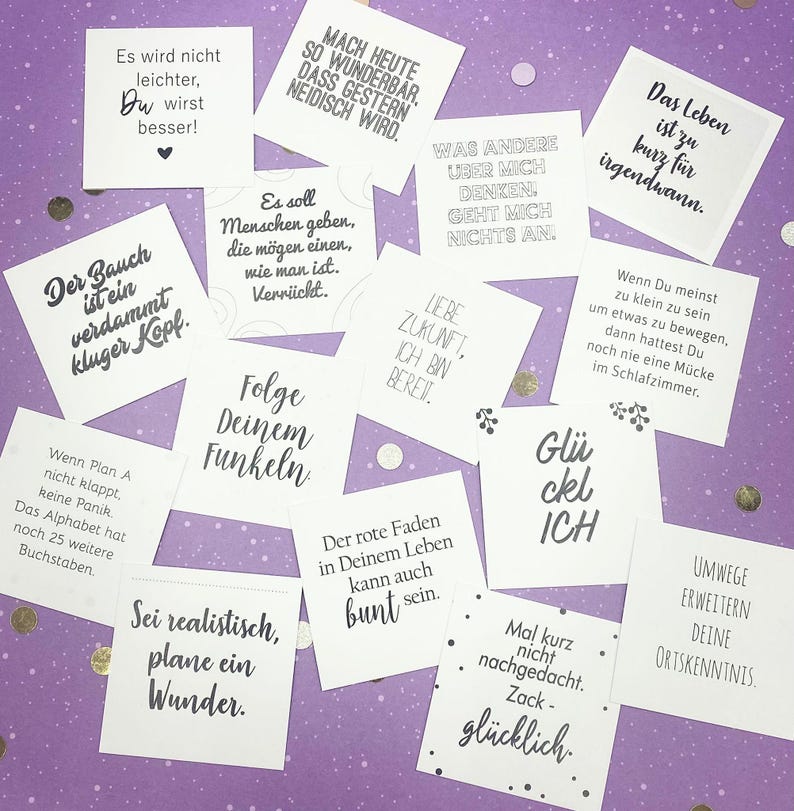 Es wird nicht
leichter,
Du wirst
besser!
MACH HEUTE
SO WUNDERBAR,
DASS GESTERN
NEIDISCH WIRD.
WAS ANDERE
ÜBER MICH
DENKEN?
GEHT MICH
NICHTS AN!
Das Leben
ist zu
kurz für
irgendwann.
Es soll
Menschen geben,
die mögen einen,
wie man ist.
Verrückt.
Der Bauch
ist ein
verdammt
kluger Kopf.
LIEBE
ZUKUNFT,
ICH BIN
BEREIT.
Wenn Du meinst
zu klein zu sein
um etwas zu bewegen,
dann hattest Du
noch nie eine Mücke
im Schlafzimmer.
Folge
Deinem
Funkeln.
Glü
ckl
ICH
Wenn Plan A
nicht klappt,
keine Panik.
Das Alphabet hat
noch 25 weitere
Buchstaben.
Der rote Faden
in Deinem Leben
kann auch
bunt sein.
UMWEGE
ERWEITERN
DEINE
ORTSKENNTNIS.
Sei realistisch,
plane ein
Wunder.
Mal kurz
nicht
nachgedacht.
Zack -
glücklich.